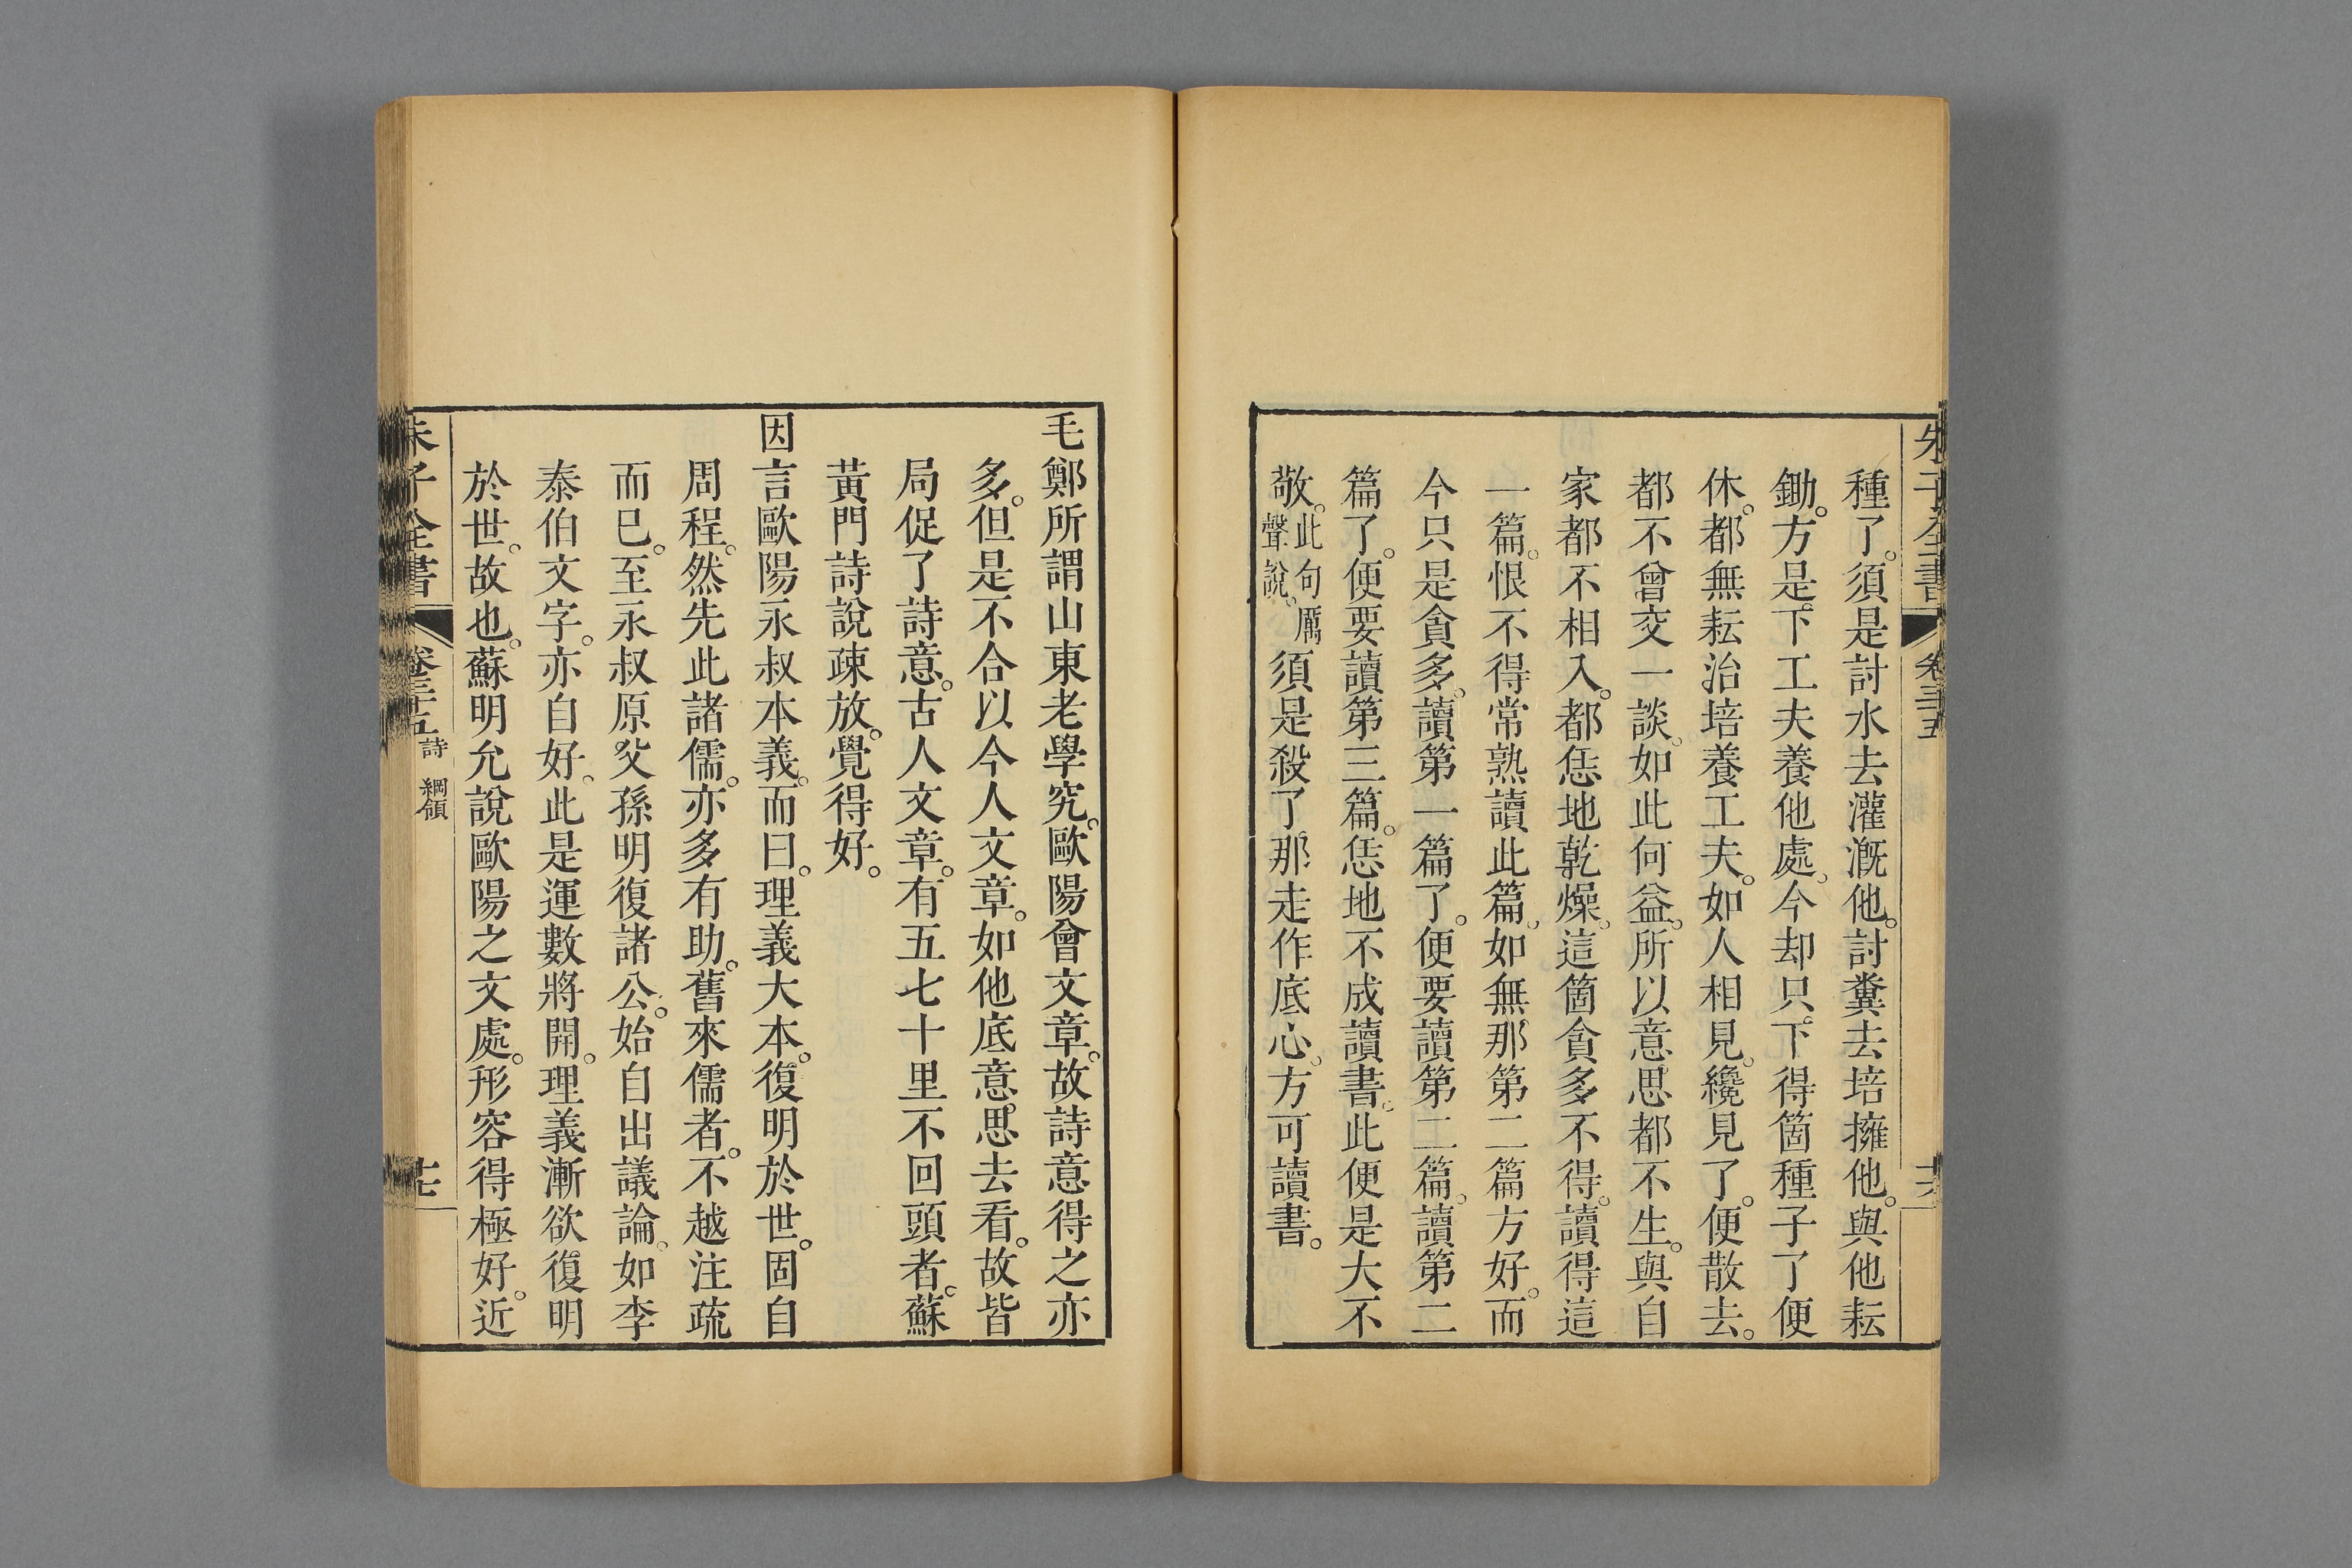 朱子全書 卷三十五 十六
種了。須是討水去灌漑他。討糞去培擁他。與他耘
鋤。方是下工夫養他處。今却只下得箇種子了便
休。都無耘治培養工夫。如人相見。纔見了。便散去。
都不曾交一談。如此何益。所以意思都不生。與自
家都不相入。都恁地乾燥。這箇貪多不得。讀得這
一篇。恨不得常熟讀此篇。如無那第二篇方好。而
今只是貪多。讀第一篇了。便要讀第二篇。讀第二
篇了。便要讀第三篇。恁地不成讀書。此便是大不
敬。此句厲聲說。須是殺了那走作底心。方可讀書。
毛鄭所謂山東老學究。歐陽會文章。故詩意得之亦
多。但是不合以今人文章。如他底意思去看。故皆
局促了詩意。古人文章。有五七十里不回頭者。蘇
黃門詩說疎放。覺得好。
因言歐陽永叔本義。而曰。理義大本。復明於世。固自
周程。然先此諸儒。亦多有助。舊來儒者。不越注疏
而已。至永叔原父孫明復諸公。始自出議論。如李
泰伯文字。亦自好。此是運數將開。理義漸欲復明
於世。故也。蘇明允說歐陽之文處。形容得極好。近
朱子全書 卷三十五 詩 綱領 十七